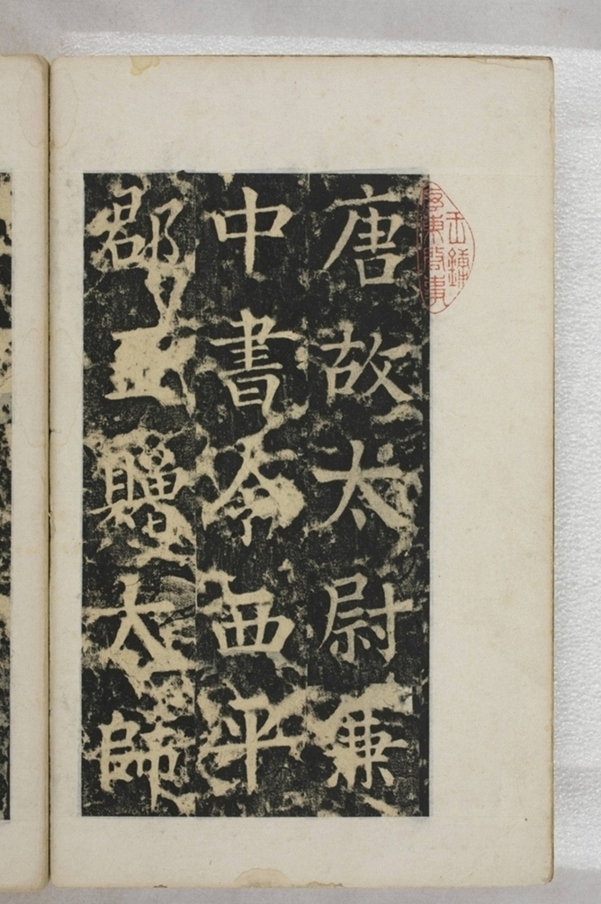 唐故太尉兼
中書令西平
郡王贈太師